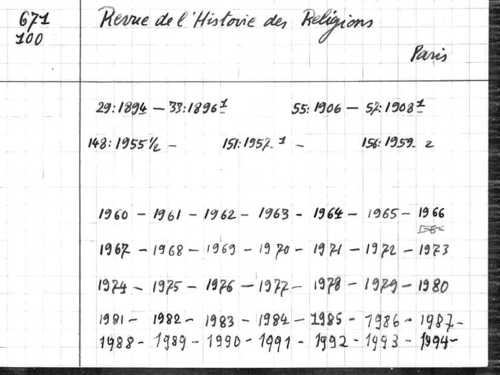 671
100
Revue de l'Histoire des Religions
Paris
29:1894 — 33:1896¹ 55:1906 — 57:1908¹
148:1955 1/2 — 151:1957.1 — 156:1959.2
1960 - 1961 - 1962 - 1963 - 1964 - 1965 - 1966
1967 - 1968 - 1969 - 1970 - 1971 - 1972 - 1973
1974 - 1975 - 1976 - 1977 - 1978 - 1979 - 1980
1981 - 1982 - 1983 - 1984 - 1985 - 1986 - 1987 -
1988 - 1989 - 1990 - 1991 - 1992 - 1993 - 1994 -